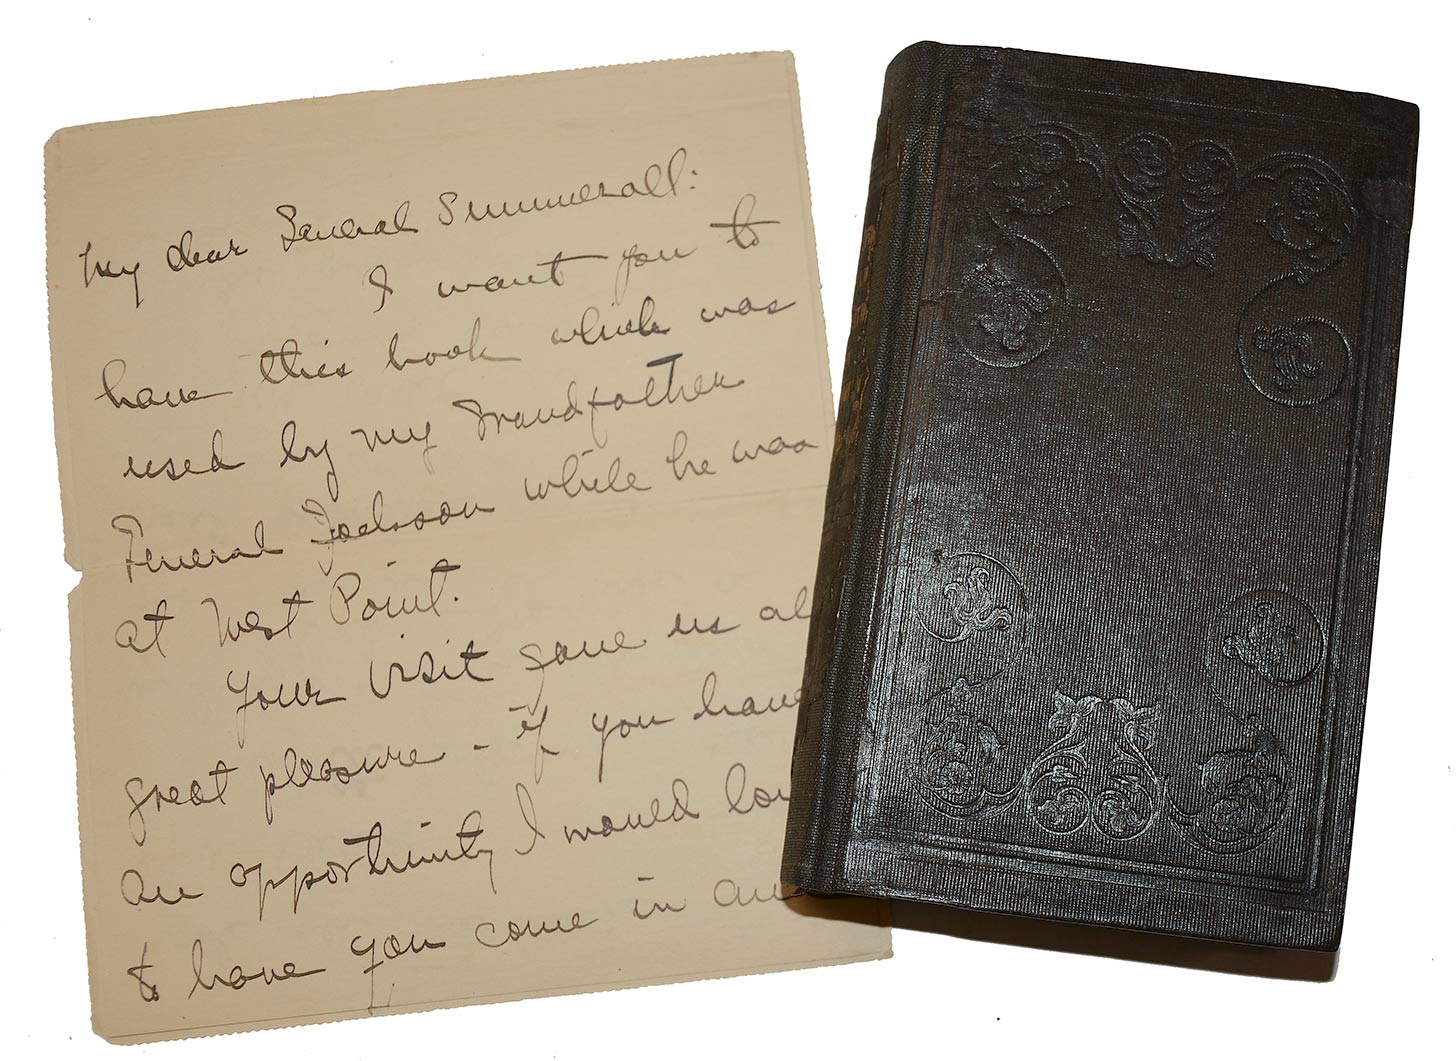 My dear General Summerall:
I want you to
have this book which was
used by my Grandfather
General Jackson while he was
at West Point.
Your visit gave us al
great pleasure - if you have
an opportunity I would lov
to have you come in an